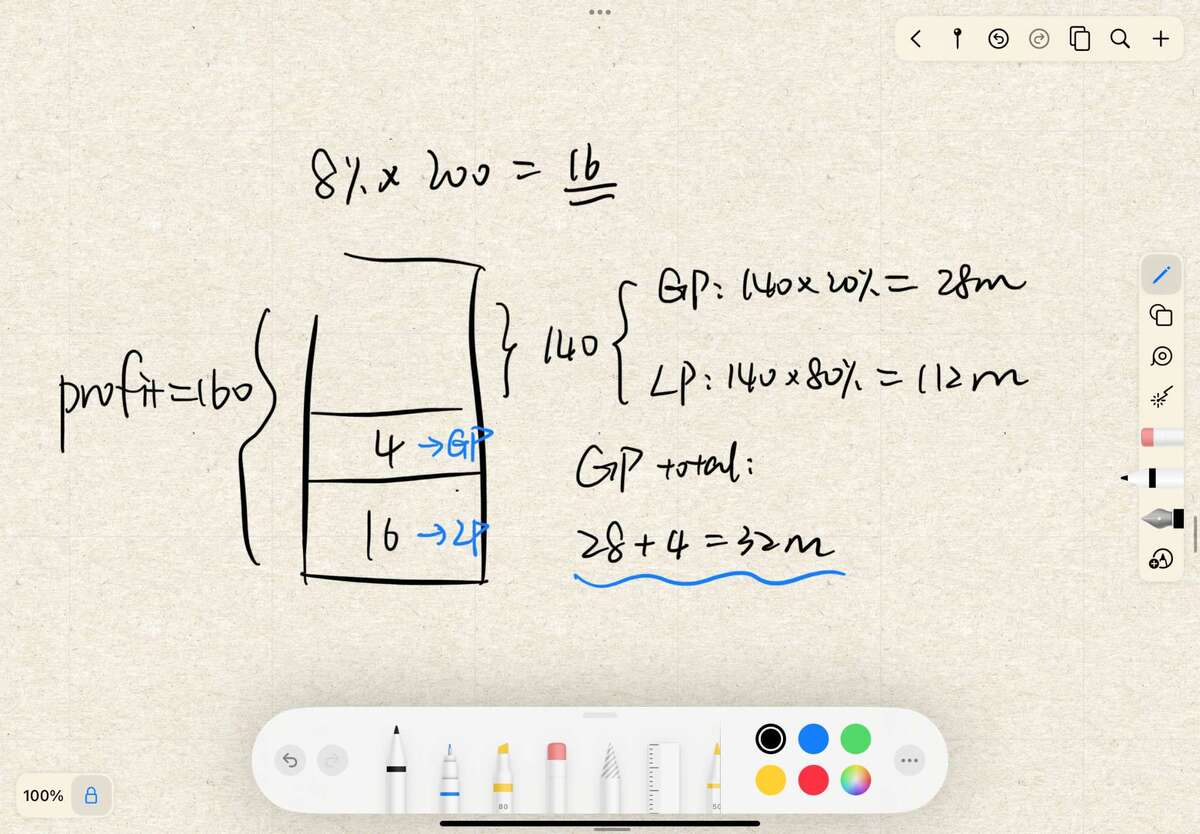 8% x 200 = 16
profit=160
140
GP: 140x20% = 28m
LP: 140x80% = 112m
4 →GP
16 →LP
GP total:
28+4=32m
100%
80
50